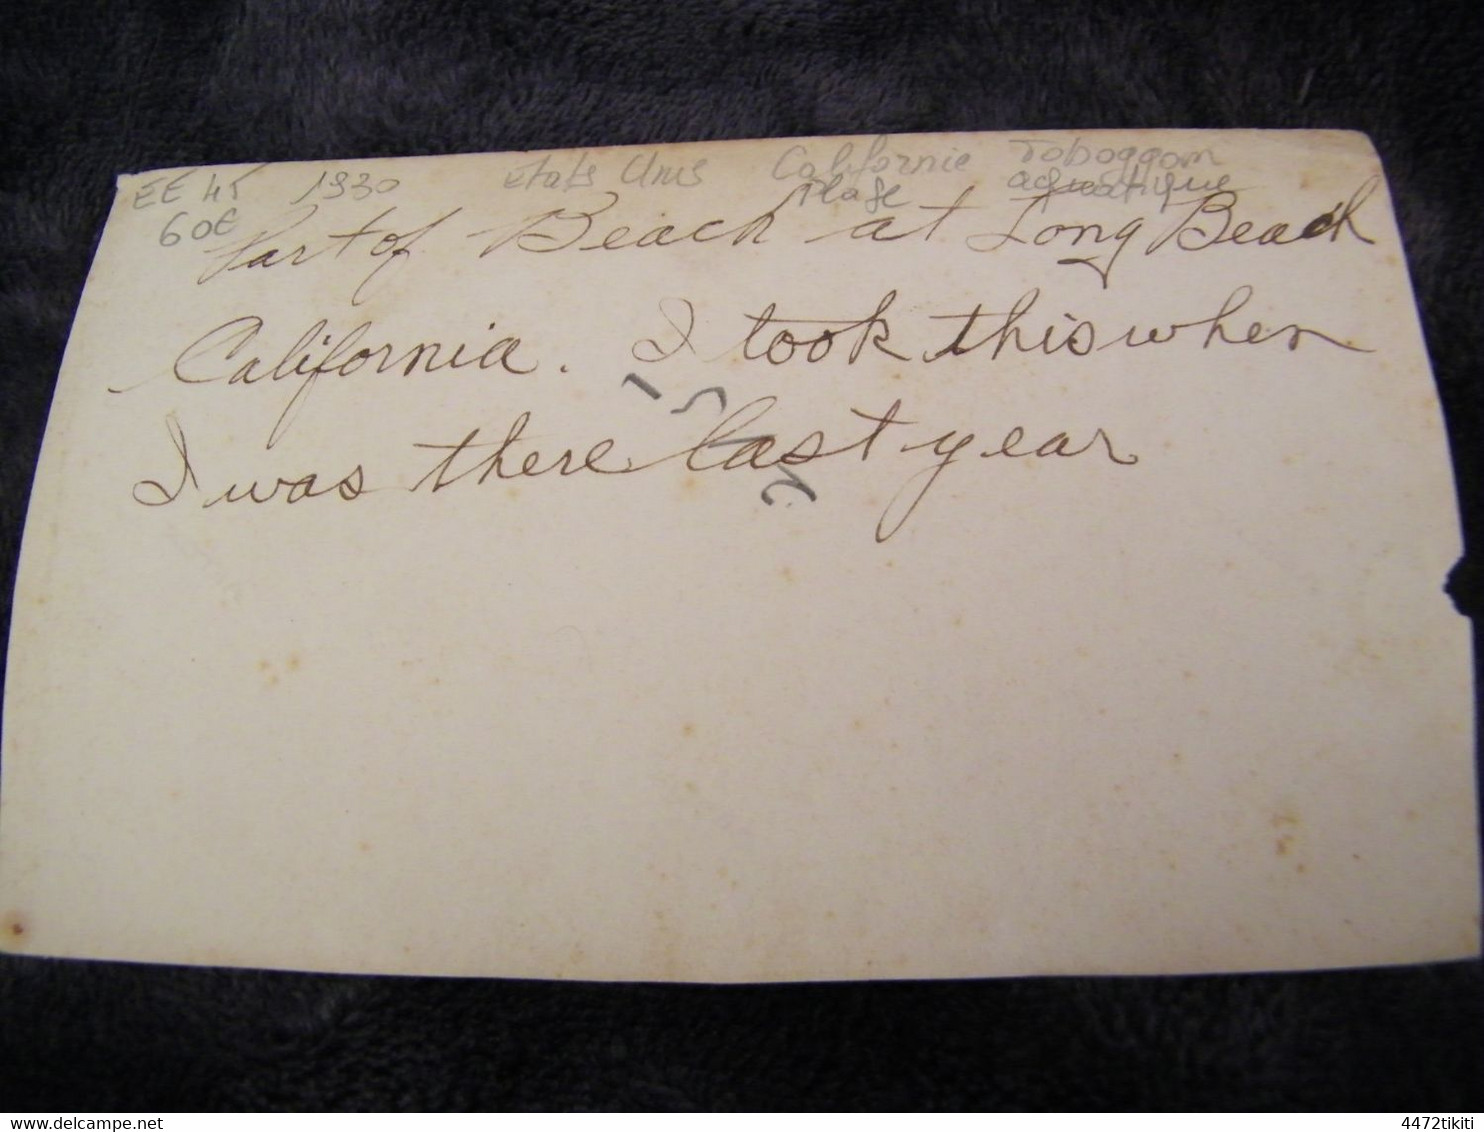 EE 45 1930 Etats Unis Californie Toboggan
60€ Plage aquatique
Part of Beach at Long Beach
California. I took this when
I was there last year
www.delcampe.net
4472tikiti